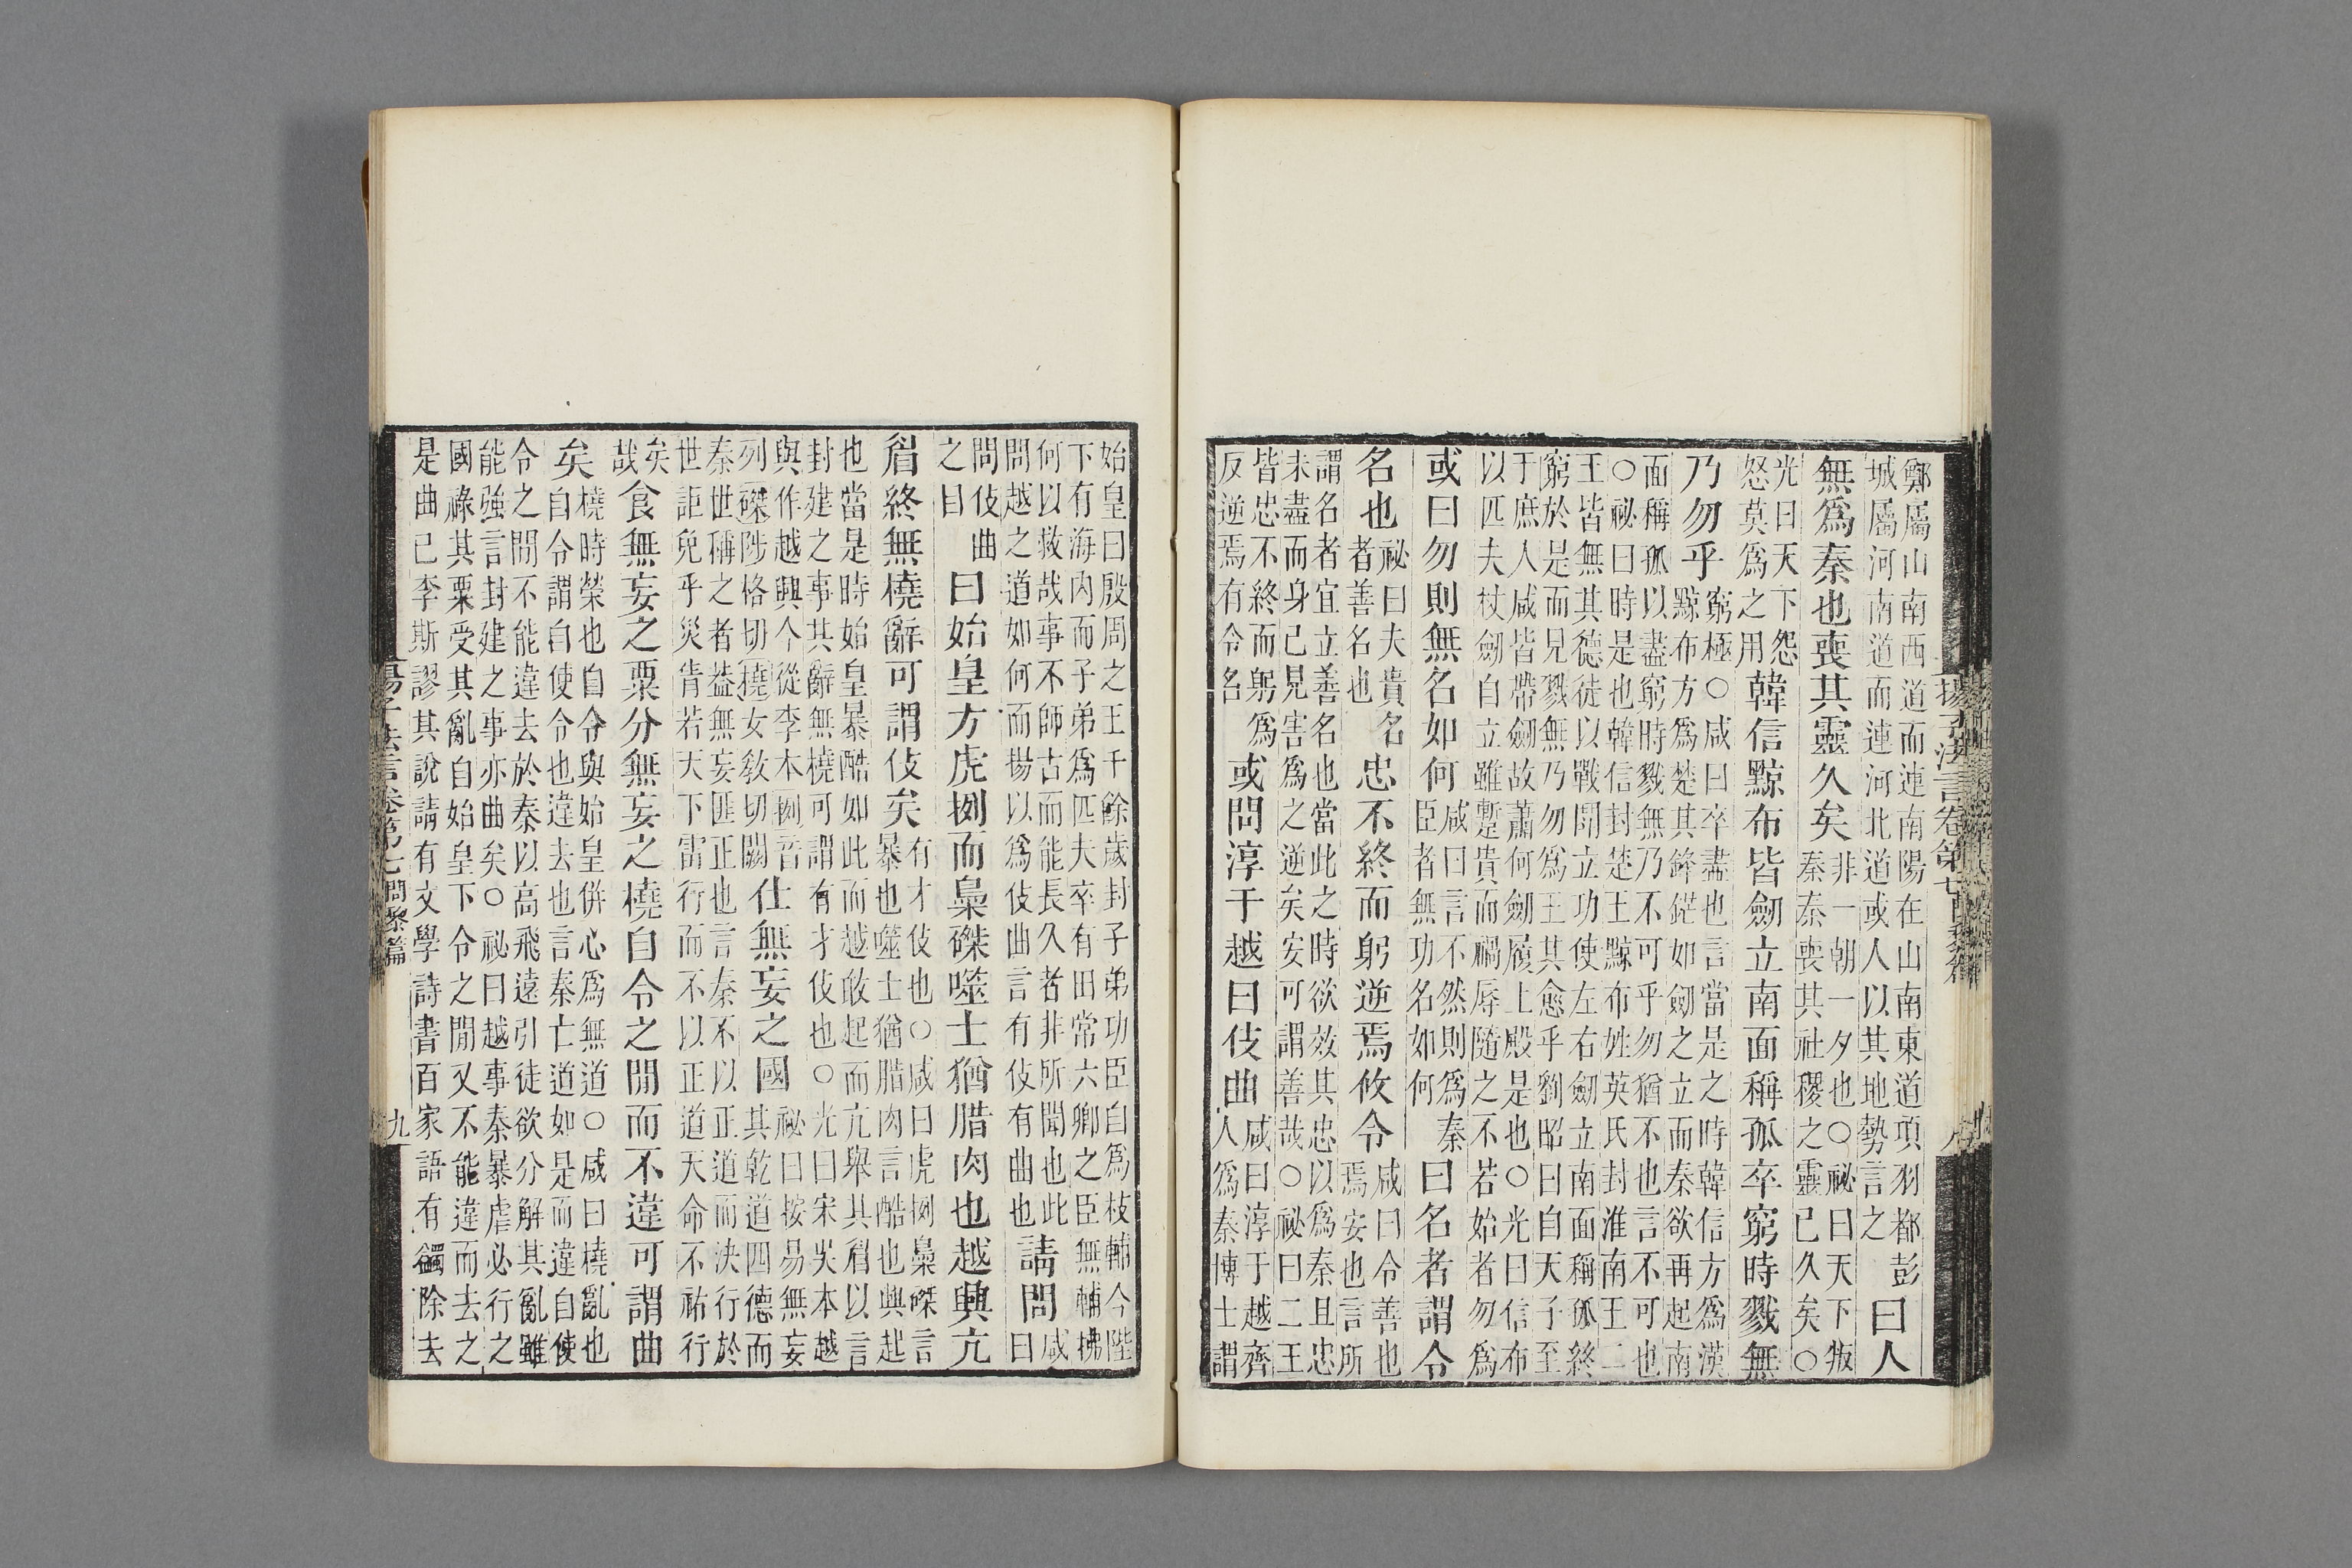 揚子法言卷第七
鄭屬山南西道而連南陽在山南東道項羽都彭
城屬河南道而連河北道或人以其地勢言之
曰人
無爲秦也喪其靈久矣
非一朝一夕也○祕曰天下叛
秦秦喪其社稷之靈已久矣○
光曰天下怨
怒莫爲之用
韓信黥布皆劒立南面稱孤卒窮時戮無
乃勿乎
窮極○咸曰卒盡也言當是之時韓信方爲漢
黥布方爲楚其鋒鋩如劒之立而秦欲再起南
面稱孤以盡窮時戮無乃不可乎勿猶不也言不可也
○祕曰時是也韓信封楚王黥布姓英氏封淮南王二
王皆無其德徒以戰鬭立功使左右劒立南面稱孤終
窮於是而見戮無乃勿爲王其愈乎劉昭曰自天子至
于庶人咸皆帶劒故蕭何劒履上殿是也○光曰信布
以匹夫杖劒自立雖蹔貴而禍辱隨之不若始者勿爲
或曰勿則無名如何
咸曰言不然則爲秦
臣者無功名如何
曰名者謂令
名也
祕曰夫貴名
者善名也
忠不終而躬逆焉攸令
咸曰令善也
焉安也言所
謂名者宜立善名也當此之時欲效其忠以爲秦且忠
未盡而身己見害爲之逆矣安可謂善哉○祕曰二王
皆忠不終而躬爲
反逆焉有令名
或問淳于越曰伎曲
咸曰淳于越齊
人爲秦博士謂
始皇曰殷周之王千餘歲封子弟功臣自爲枝輔今陛
下有海內而子弟爲匹夫卒有田常六卿之臣無輔拂
何以救哉事不師古而能長久者非所聞也此
問越之道如何而揚以爲伎曲言有伎有曲也
請問
咸曰
問伎曲
之目
曰始皇方虎挒而梟磔噬士猶腊肉也越興亢
眉終無橈辭可謂伎矣
有才伎也○咸曰虎挒梟磔言
暴也噬士猶腊肉言酷也興起
也當是時始皇暴酷如此而越敢起而亢舉其眉以言
封建之事其辭無橈可謂有才伎也○光曰宋吳本越
與作越興今從李本挒音
列磔陟格切橈女敎切闕
仕無妄之國
祕曰按易無妄
其乾道四德而
秦世稱之者葢無妄匪正也言秦不以正道而決行於
世詎免乎災眚若天下雷行而不以正道天命不祐行
矣哉
食無妄之粟分無妄之橈自令之閒而不違可謂曲
矣
橈時榮也自令與始皇併心爲無道○咸曰橈亂也
自令謂自使令也違去也言秦亡道如是而違自使
令之閒不能違去於秦以高飛遠引徒欲分解其亂雖
能強言封建之事亦曲矣○祕曰越事秦暴虐必行之
國祿其粟受其亂自始皇下令之閒又不能違而去之
是曲已李斯謬其說請有文學詩書百家語有蠲除去
揚子法言卷第七 問黎篇
九